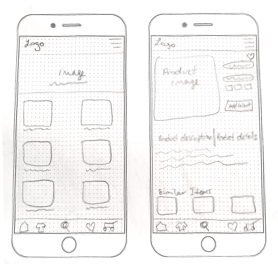 Logo
Image
Logo
Product
image
Add to cart
Product description | Product details
Similar Items